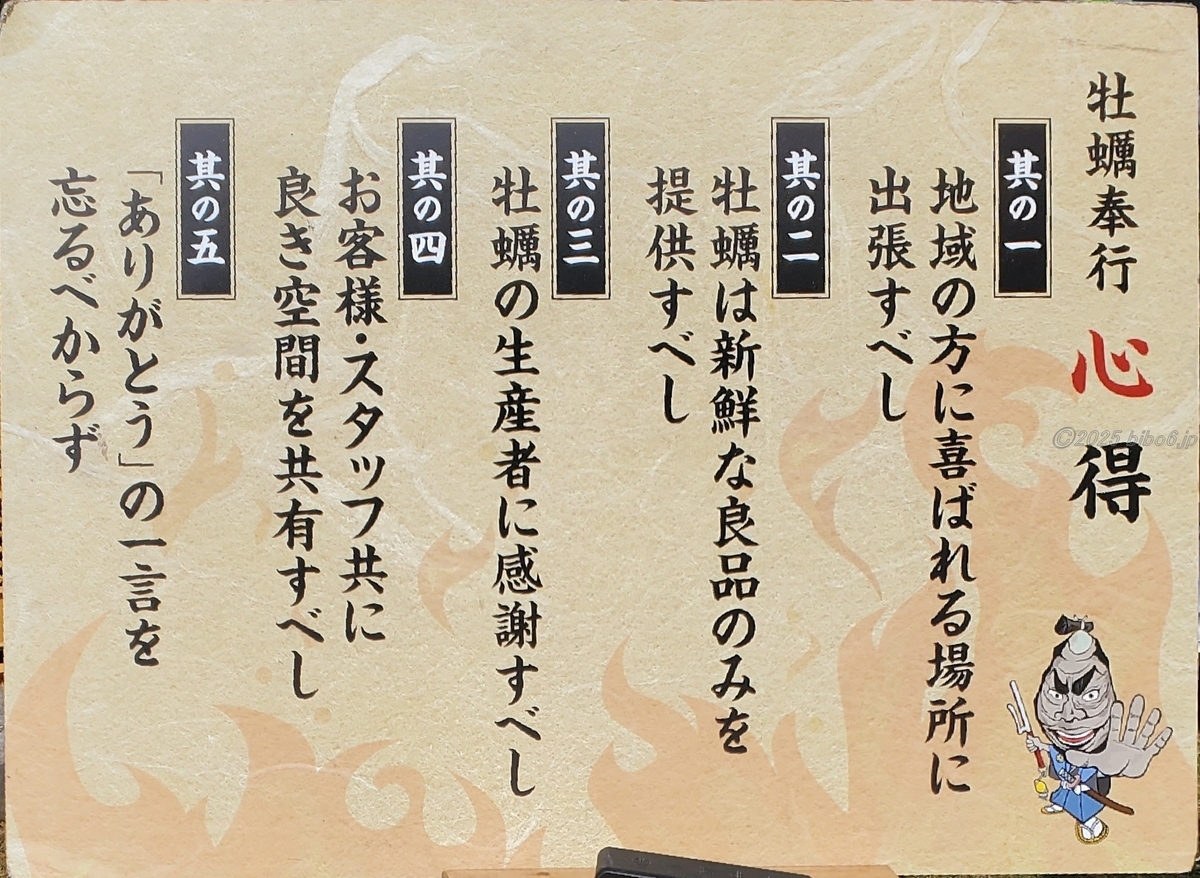 牡蠣奉行 心得
其の一
地域の方に喜ばれる場所に
出張すべし
其の二
牡蠣は新鮮な良品のみを
提供すべし
其の三
牡蠣の生産者に感謝すべし
其の四
お客様・スタッフ共に
良き空間を共有すべし
其の五
「ありがとう」の一言を
忘るべからず
©2025 bibo6.jp